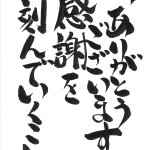 ありがとう
ございます
感謝を
刻んでいくこ